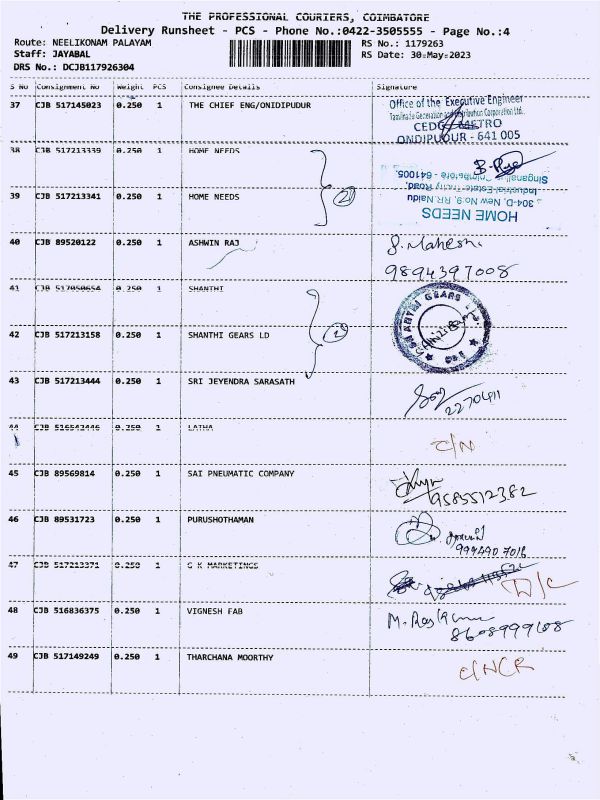 THE PROFESSIONAL COURIERS, COIMBATORE
Delivery Runsheet - PCS - Phone No.:0422-3505555 - Page No.:4
Route: NEELIKONAM PALAYAM RS No.: 1179263
Staff: JAYABAL RS Date: 30-May-2023
DRS No.: DCJB117926304
S No Consignment No Weight PCS Consignee Details Signature
37 CJB 517145023 0.250 1 THE CHIEF ENG/ONIDIPUDUR
Office of the Executive Engineer
Tamilnadu Generation and Distribution Corporation Ltd.
CEDC / METRO
ONDIPUDUR - 641 005
38 CJB 517213339 0.250 1 HOME NEEDS
39 CJB 517213341 0.250 1 HOME NEEDS
2
HOME NEEDS
304-D, New No.9, RR Naidu
Industrial Estate, Trichy Road,
Singanallur, Coimbatore - 641005.
40 CJB 89520122 0.250 1 ASHWIN RAJ
9894397008
41 CJB 517050654 0.250 1 SHANTHI
42 CJB 517213158 0.250 1 SHANTHI GEARS LD
SHANTHI GEARS
43 CJB 517213444 0.250 1 SRI JEYENDRA SARASATH
44 CJB 516542446 0.250 1 LATHA
C/N
45 CJB 89569814 0.250 1 SAI PNEUMATIC COMPANY
9585512382
46 CJB 89531723 0.250 1 PURUSHOTHAMAN
47 CJB 517213371 0.250 1 G K MARKETINGS
D/C
48 CJB 516836375 0.250 1 VIGNESH FAB
49 CJB 517149249 0.250 1 THARCHANA MOORTHY
C/NCR